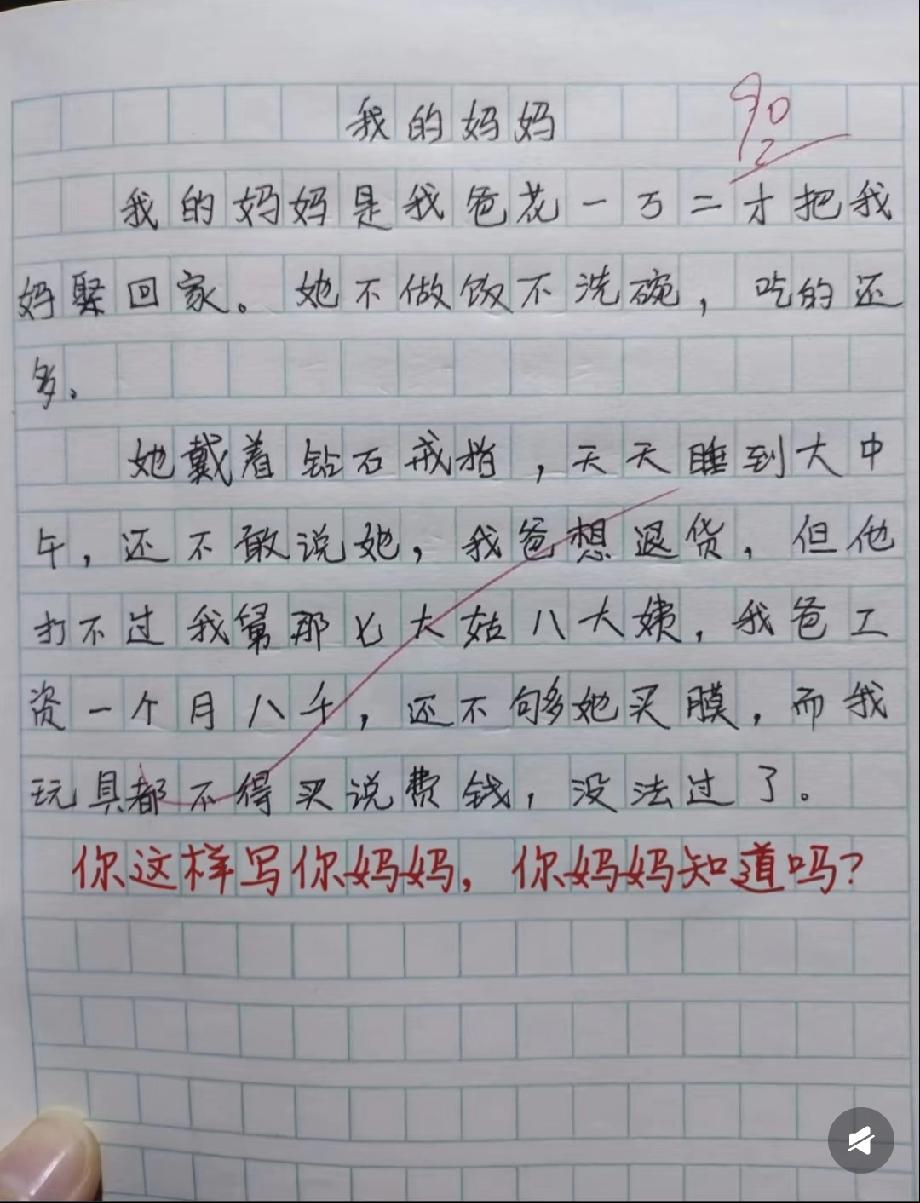 我的妈妈
90
我的妈妈是我爸花一万二才把我
妈娶回家。她不做饭不洗碗，吃的还
多。
她戴着钻石戒指，天天睡到大中
午，还不敢说她，我爸想退货，但他
打不过我舅那七大姑八大姨，我爸工
资一个月八千，还不够她买膜，而我
玩具都不得买说费钱，没法过了。
你这样写你妈妈，你妈妈知道吗？